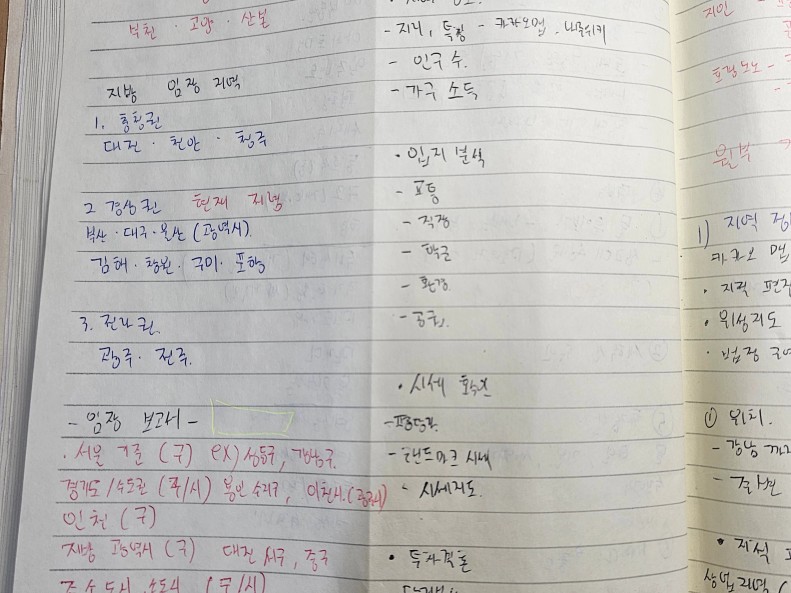 부천 · 고양 · 산본
지방 임장 지역
1. 충청권
대전 · 천안 · 청주
2 경상권 현재 지역
부산 · 대구 · 울산 (광역시)
김해 · 창원 · 구미 · 포항
3. 전라권.
광주 · 전주.
- 임장 보고서 -
· 서울 기준 (구) ex) 성동구, 강남구
경기도/수도권 (구/시) 용인 수지구,
인천 (구)
지방 광역시 (구) 대전 서구, 중구
중소도시 소도시 (구/시)
- 지리, 특징 - 카카오맵, 나무위키
- 인구 수.
- 가구 소득
· 입지 분석
- 교통
- 직장
- 학군
- 환경
- 공급.
· 시세
- 평당가
- 랜드마크 시세
- 시세지도.
· 투자결론
지인 -
일부
1) 지역
카카오 맵
· 지적 편집
· 위성지도
· 법정 구역
① 위치.
- 강남 까지
· 지적
상업지역 (